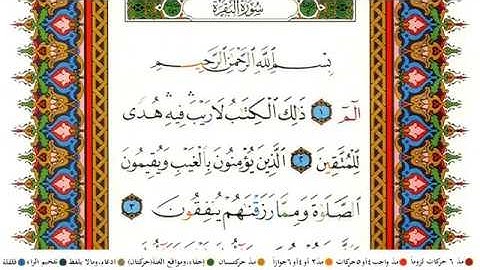 سُورَةُ البَقَرَةِ
بِسْمِ ٱللَّهِ ٱلرَّحْمَٰنِ ٱلرَّحِيمِ
الٓمٓ ١ ذَٰلِكَ ٱلْكِتَٰبُ لَا رَيْبَ ۛ فِيهِ ۛ هُدًى
لِّلْمُتَّقِينَ ٢ ٱلَّذِينَ يُؤْمِنُونَ بِٱلْغَيْبِ وَيُقِيمُونَ
ٱلصَّلَوٰةَ وَمِمَّا رَزَقْنَٰهُمْ يُنفِقُونَ ٣
مدّ ٦ حركات لزوماً مدّ واجب ٤ أو ٥ حركات مدّ ٢ أو ٤ أو ٦ جوازاً مدّ حركتان إخفاء، ومواقع الغنة (حركتان) ادغام، ومالا يلفظ تفخيم الراء قلقلة